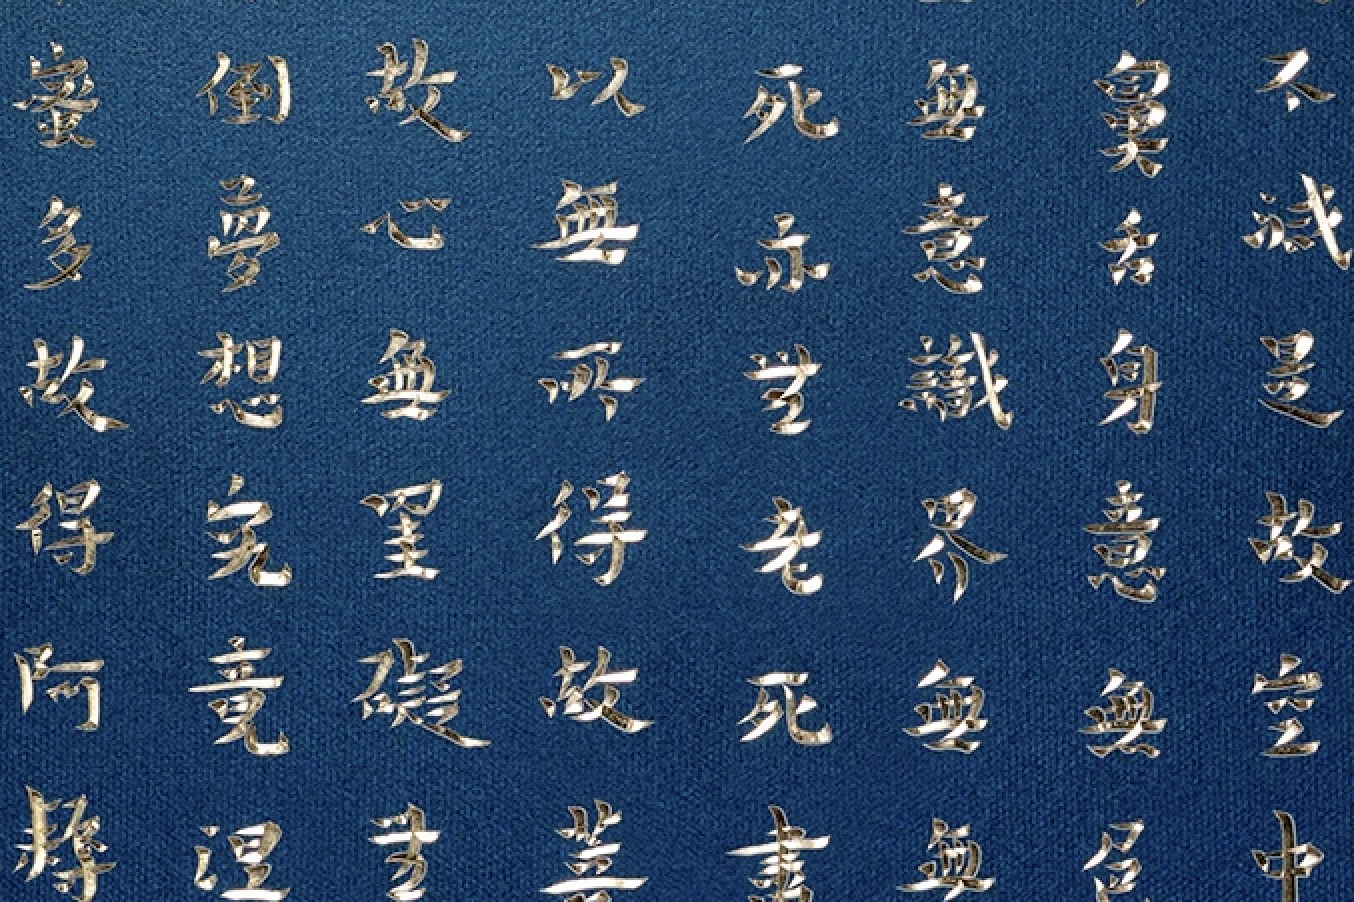 不減是故空中
鼻舌身意無色
無意識界無無
死亦無老死盡
以無所得故菩
故心無罣礙無
倒夢想究竟涅
蜜多故得阿耨